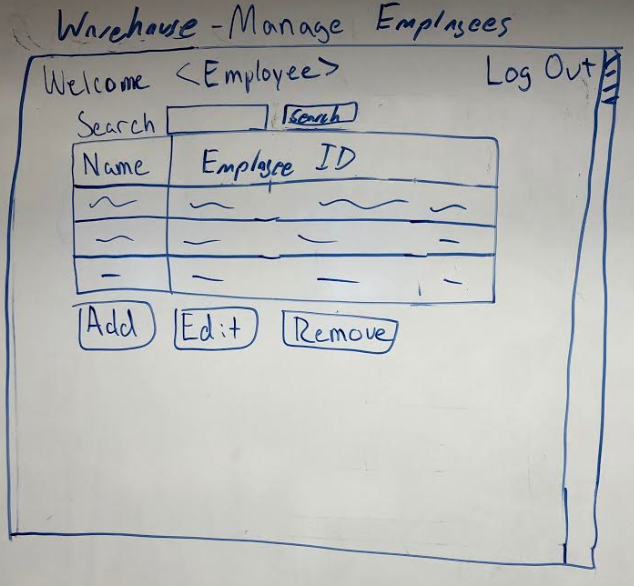 Warehouse - Manage Employees
Welcome <Employee> Log Out
Search Search
Name Employee ID
Add Edit Remove